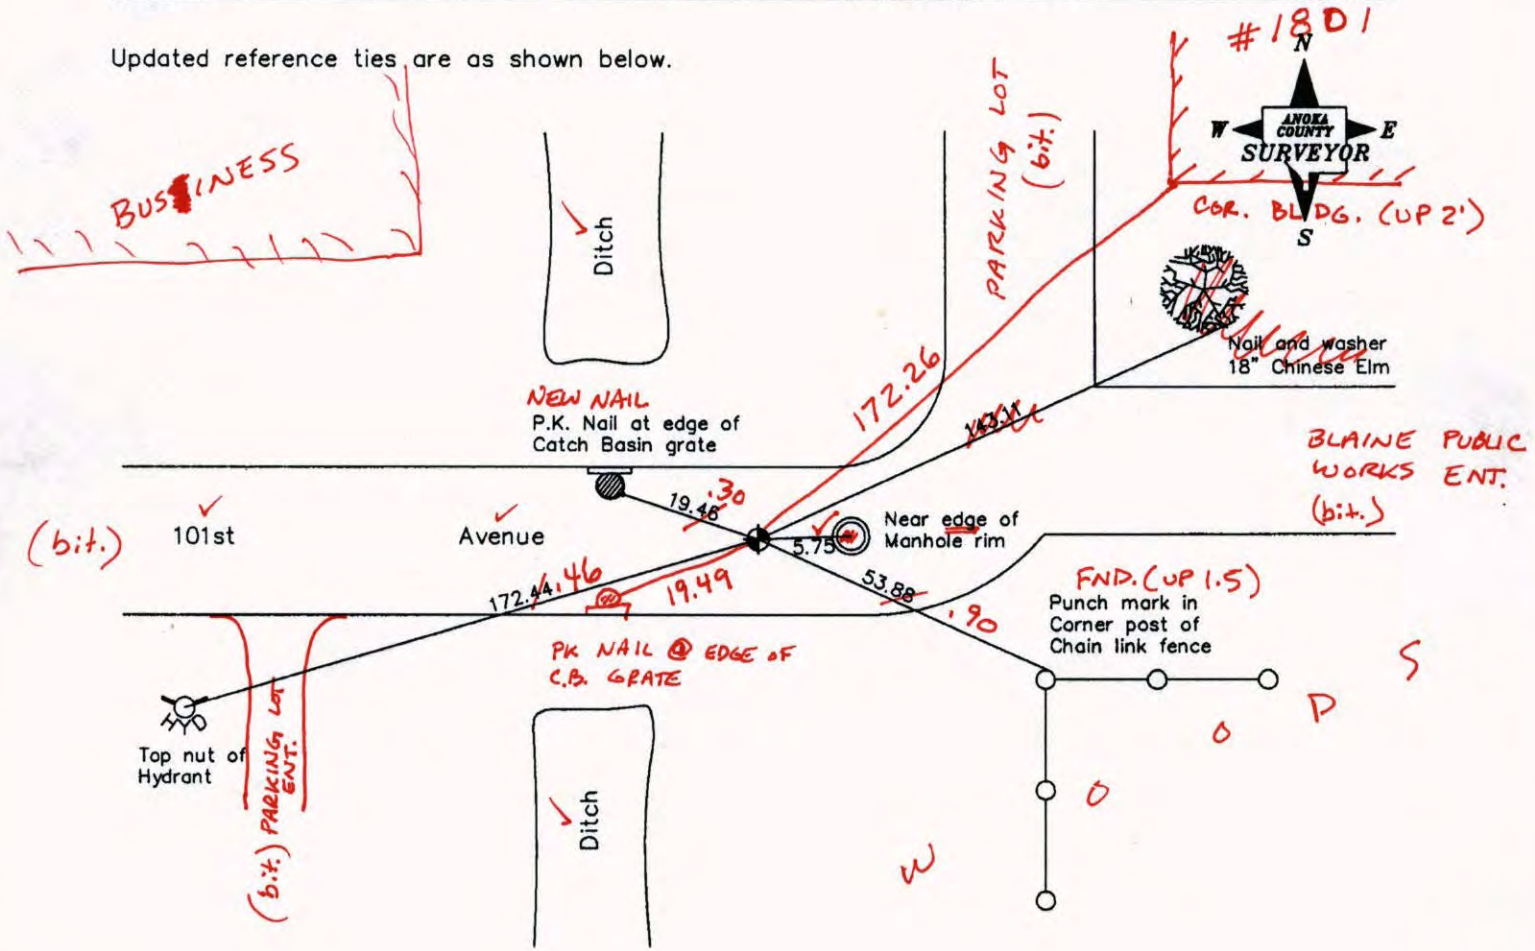 Updated reference ties are as shown below.
#1801
N
W
ANOKA
COUNTY
E
SURVEYOR
S
COR. BLDG. (UP 2')
BUSINESS
Ditch
PARKING LOT
(bit.)
Nail and washer
18" Chinese Elm
172.26
143.11
NEW NAIL
P.K. Nail at edge of
Catch Basin grate
BLAINE PUBLIC
WORKS ENT.
(bit.)
19.46 .30
(bit.)
101st
Avenue
5.75
Near edge of
Manhole rim
172.44 .46
19.49
53.88
.90
FND. (UP 1.5)
Punch mark in
Corner post of
Chain link fence
PK NAIL @ EDGE OF
C.B. GRATE
HYD
Top nut of
Hydrant
(bit.) PARKING LOT
ENT.
Ditch
W O O D S